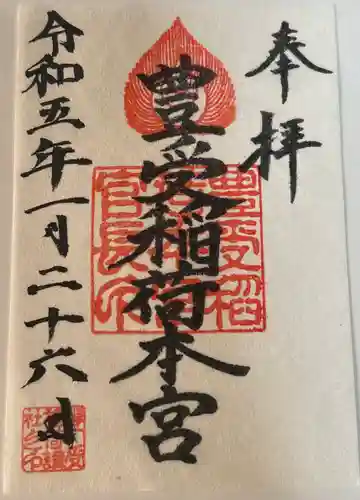 奉拝
豊受稲荷本宮
令和五年一月二十六日